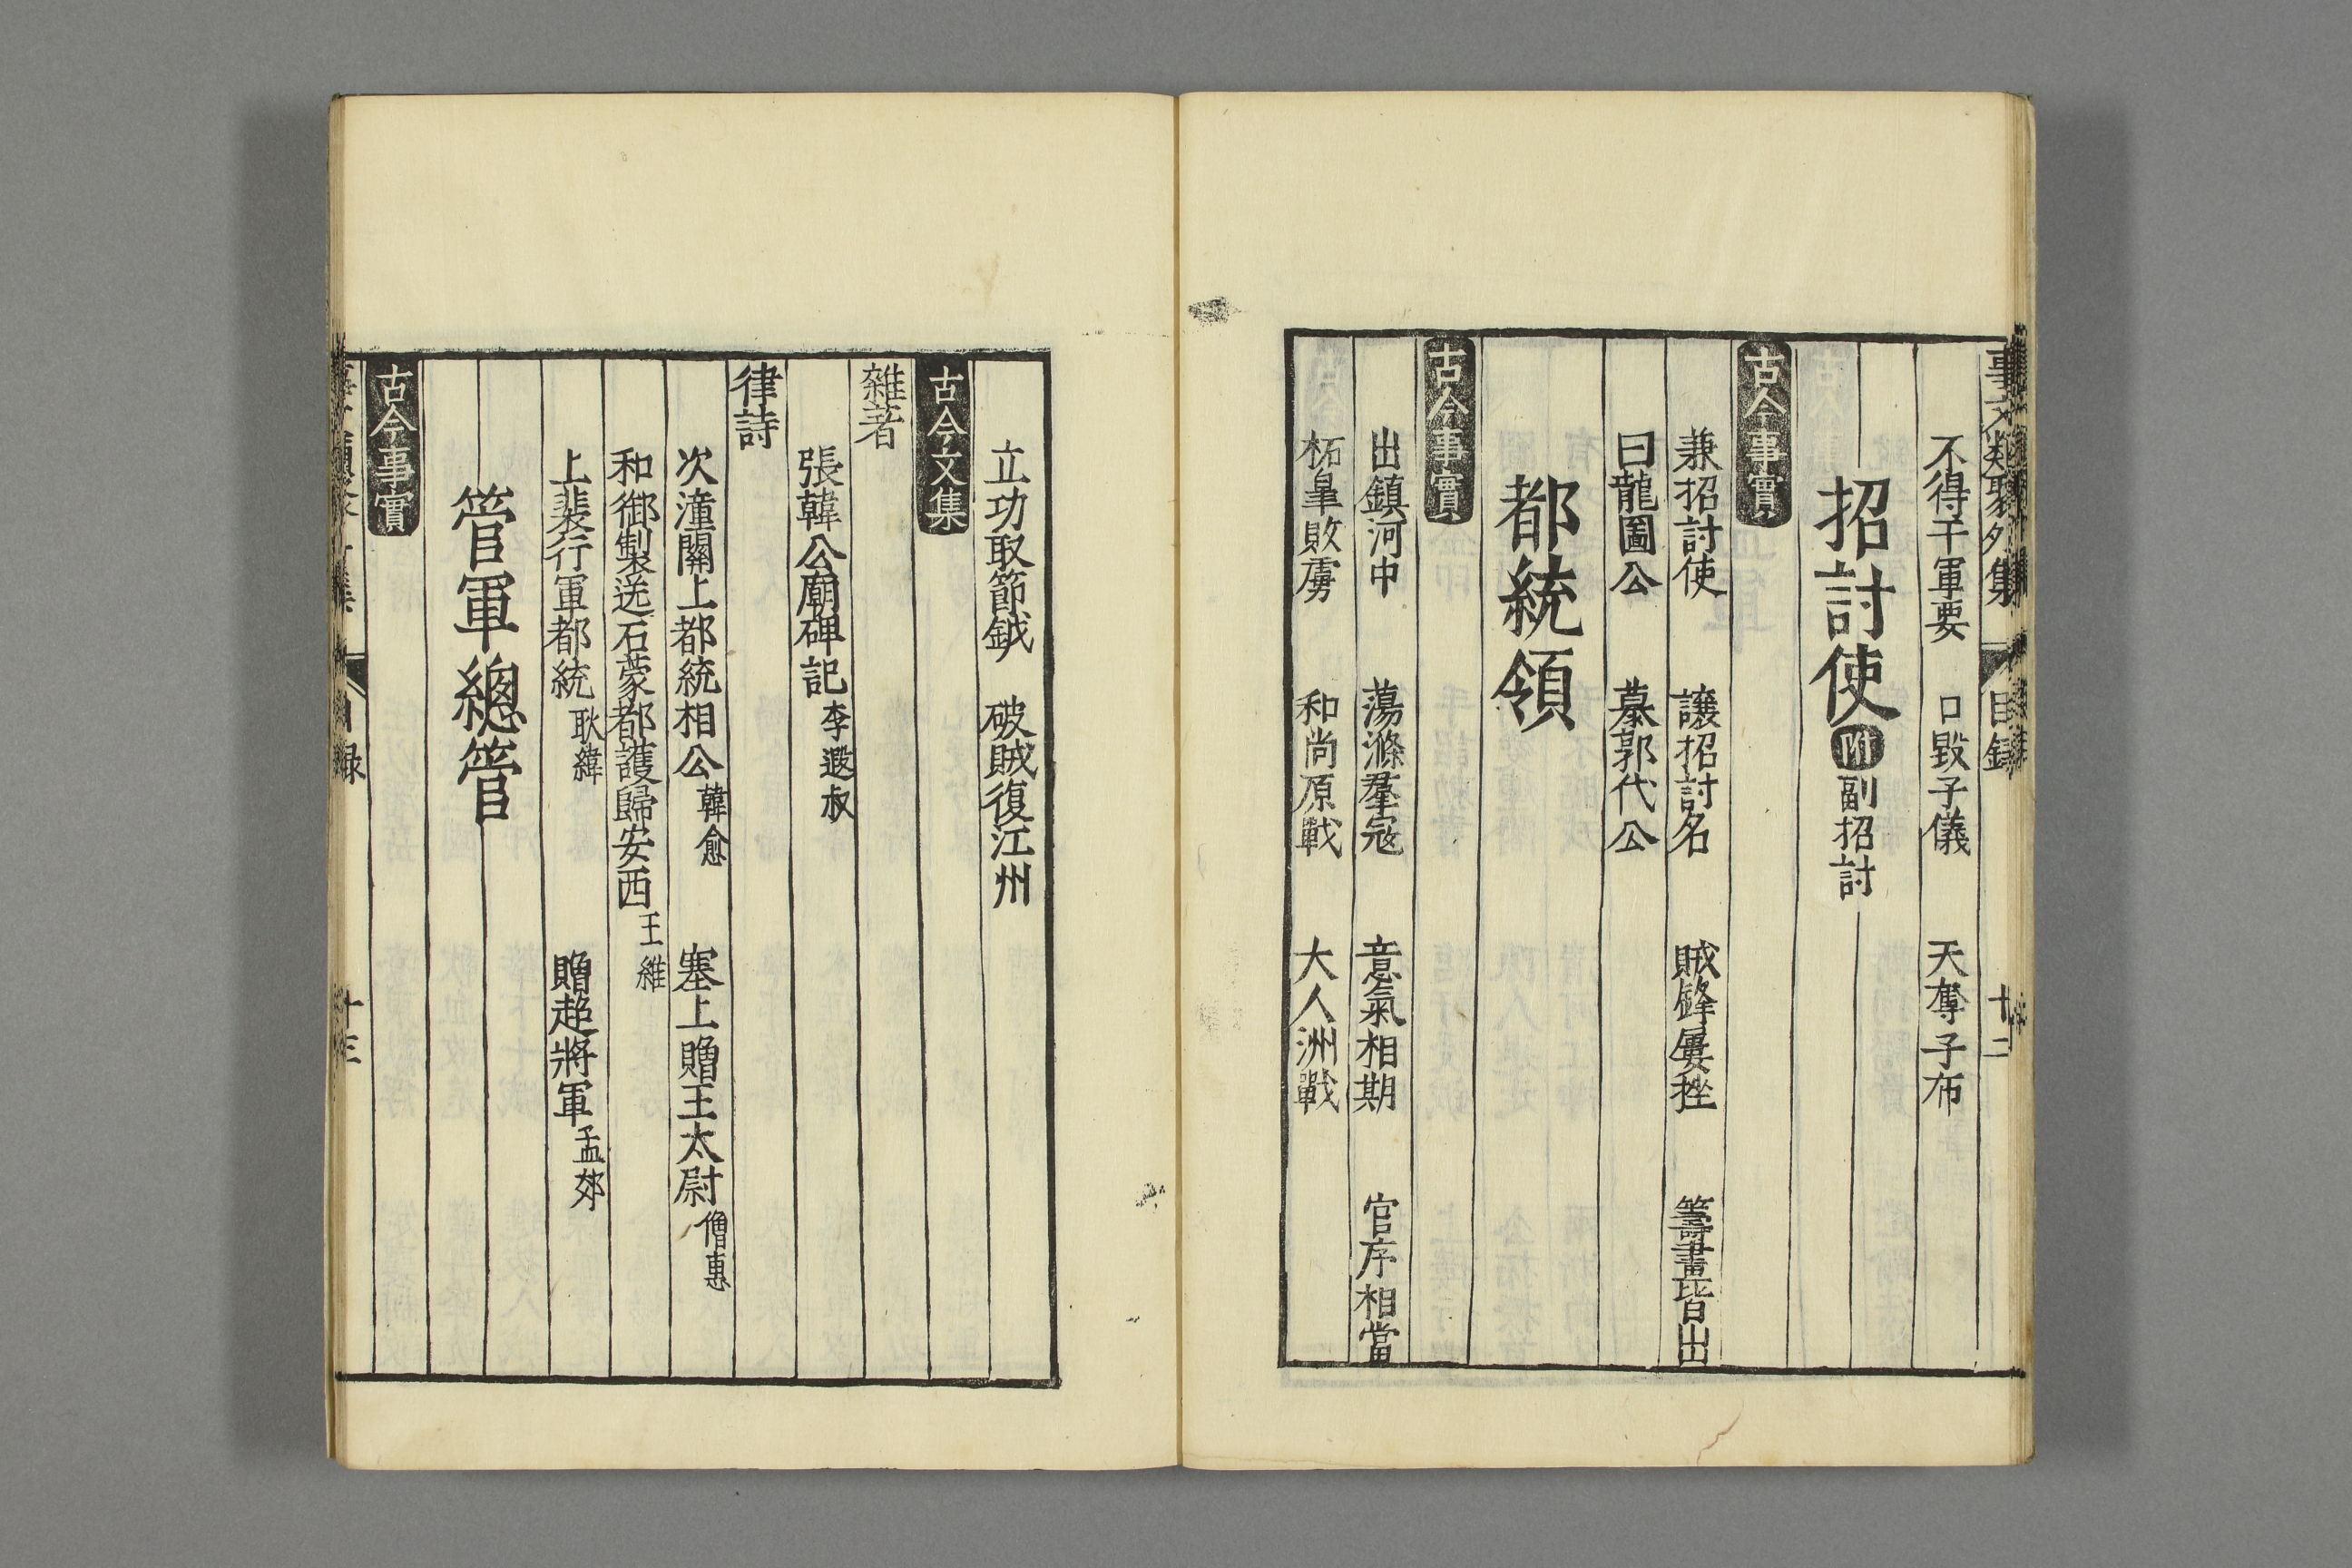 事文類聚外集 目錄 十二
不得干軍要 口毀子儀 天奪子布
招討使 附 副招討
古今事實
兼招討使 讓招討名 賊鋒屢挫 籌畫皆出
曰龍圖公 慕郭代公
都統領
古今事實
出鎮河中 蕩滌羣寇 意氣相期 官序相當
柘臯敗虜 和尚原戰 大人洲戰
立功取節鉞 破賊復江州
古今文集
雜著
張韓公廟碑記 李遐叔
律詩
次潼關上都統相公 韓愈 塞上贈王太尉 僧惠
和御製送石蒙都護歸安西 王維
上裴行軍都統 耿緯 贈趙將軍 孟郊
管軍總管
古今事實
目録 十三